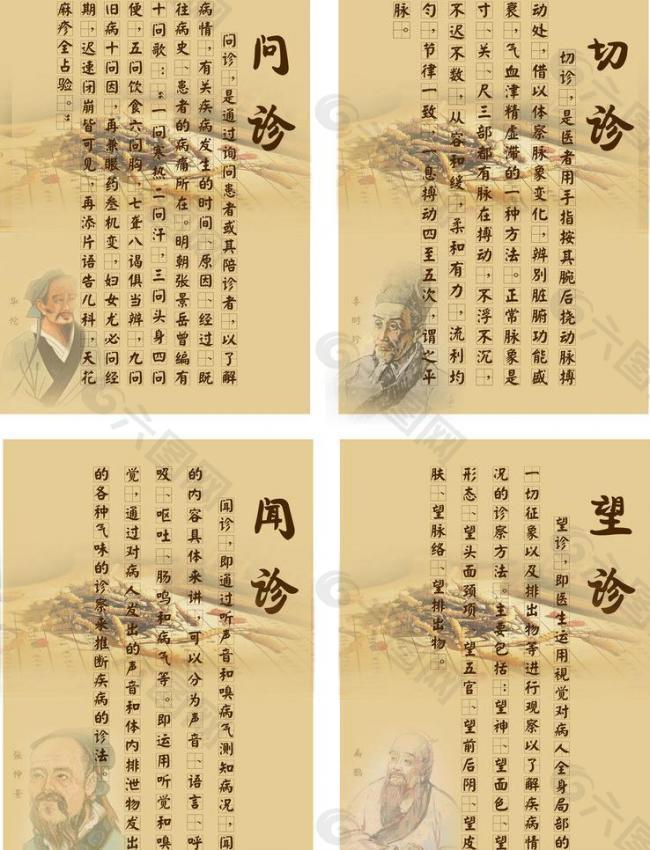 问诊
问诊，是通过询问患者或其陪诊者，以了解
病情，有关疾病发生的时间、原因、经过、既
往病史、患者的病痛所在。明朝张景岳曾编有
十问歌：“一问寒热二问汗，三问头身四问
便，五问饮食六问胸，七聋八渴俱当辨，九问
旧病十问因，再兼服药参机变，妇女尤必问经
期，迟速闭崩皆可见，再添片语告儿科，天花
麻疹全占验。”
华佗
切诊
切诊，是医者用手指按其腕后桡动脉搏
动处，借以体察脉象变化，辨别脏腑功能盛
衰，气血津精虚滞的一种方法。正常脉象是
寸、关、尺三部都有脉在搏动，不浮不沉，
不迟不数，从容和缓，柔和有力，流利均
匀，节律一致，一息搏动四至五次，谓之平
脉。
李时珍
闻诊
闻诊，即通过听声音和嗅病气测知病况，闻
的内容具体来讲，可以分为声音、语言、呼
吸、呕吐、肠鸣和病气等。即运用听觉和嗅
觉，通过对病人发出的声音和体内排泄物发出
的各种气味的诊察来推断疾病的诊法。
张仲景
望诊
望诊，即医生运用视觉对病人全身局部的
一切征象以及排出物等进行观察以了解疾病情
况的诊察方法。主要包括：望神、望面色、望
形态、望头面颈项、望五官、望前后阴、望皮
肤、望脉络、望排出物。
扁鹊
六图网